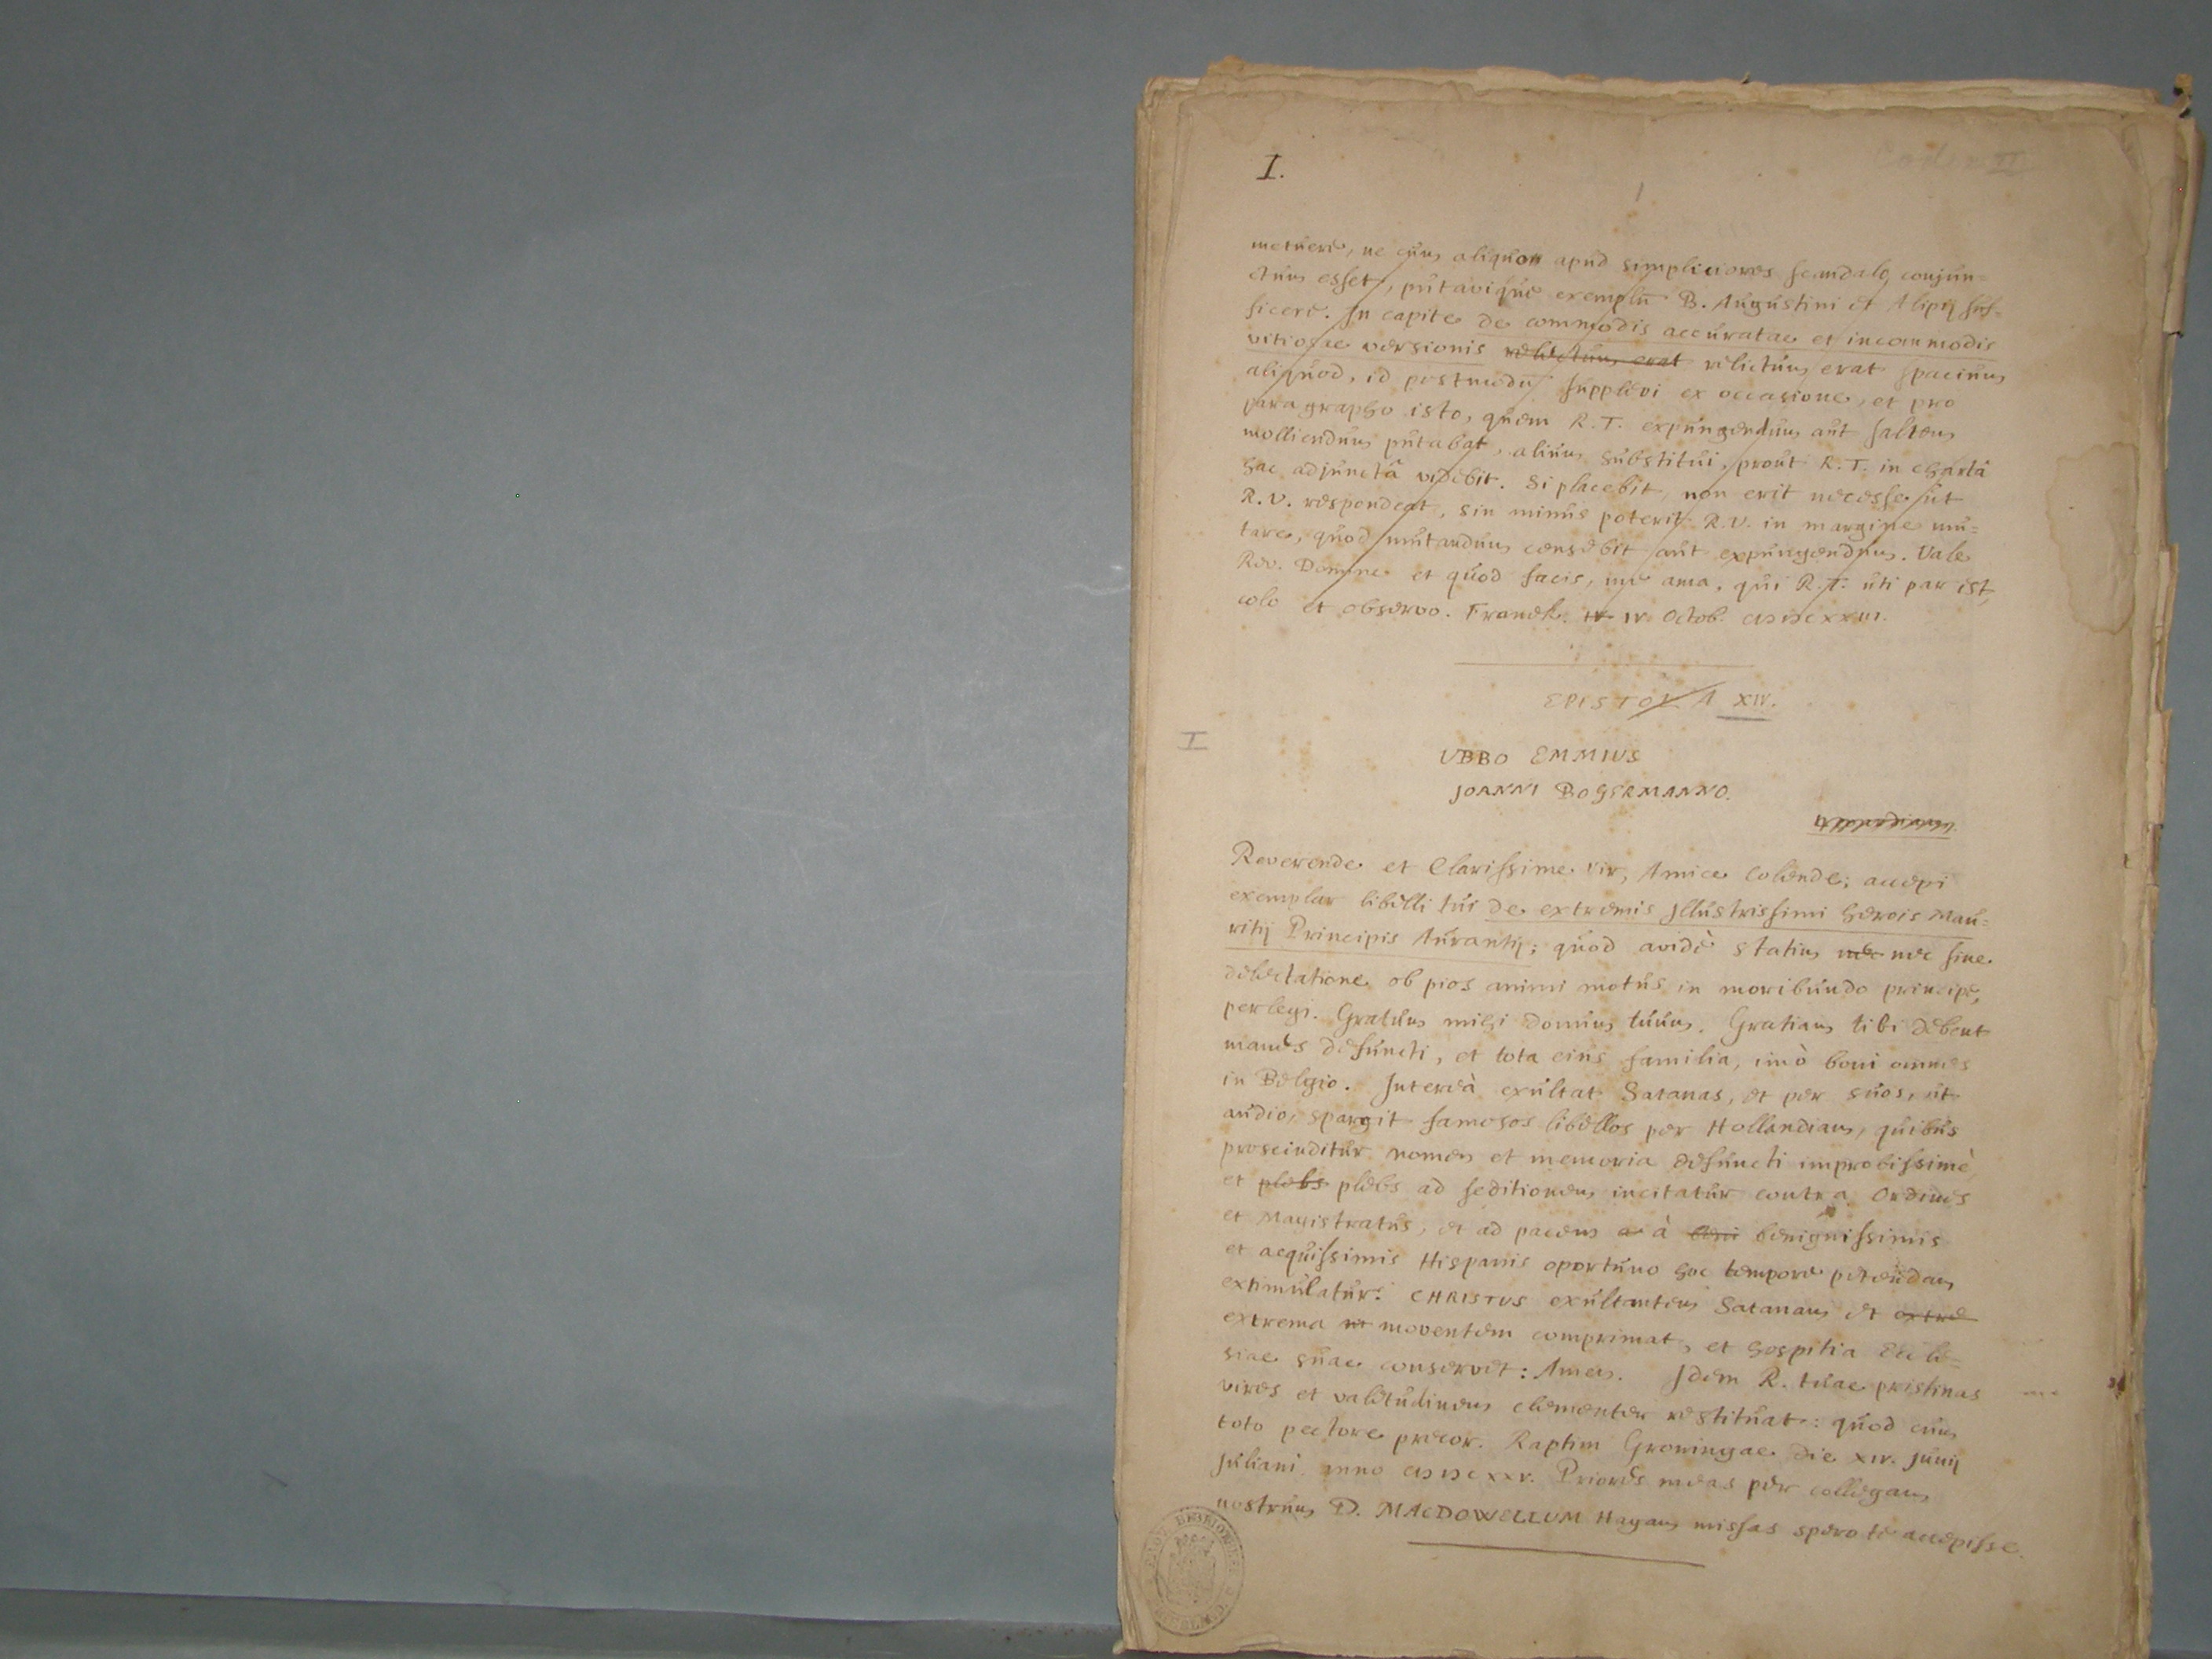 I.
metuere, ne cum aliquo apud simpliciores scandalo conjun-
ctum esset, putavique exemplū B. Augustini et Alipij suf-
ficere. In capite de commodis accuratae et incommodis
vitiosae versionis relictum erat relictum erat spacium
aliquod, id postmodū supplevi ex occasione, et pro
paragrapho isto, quem R. T. expungendum aut saltem
molliendum putabat, alium substitui, prout R. T. in charta
hac adjunctâ videbit. Si placebit, non erit necesse ut
R. V. respondeat, sin minus poterit R. V. in margine mu=
tare, quod mutandum censebit aut expungendum. Vale
Rev. Domine et quod facis, me ama, qui R. T. uti par est,
colo et observo. Franek. IV Octob. CIƆIƆCXXIII.
EPISTOLA XIV.
I
UBBO EMMIUS
JOANNI BOGERMANNO.
Reverende et Clarissime Vir, Amice Colende; accepi
exemplar libelli tui de extremis Illustrissimi Herois Mau=
ritij Principis Aurantij; quod avidè statim nec nec sine
delectatione ob pios animi motus in moribundo principe,
perlegi. Gratum mihi donum tuum. Gratiam tibi debent
manes defuncti, et tota eius familia, imò boni omnes
in Belgio. Intereà exultat Satanas, et per suos, ut
audio, spargit famosos libellos per Hollandiam, quibus
proscinditur nomen et memoria defuncti improbissimè
et plebs plebs ad seditionem incitatur contra Ordines
et Magistratus, et ad pacem a à beni benignissimis
et aequissimis Hispanis oportuno hoc tempore petendam
extimulatur. CHRISTUS exultantem Satanam et extre
extrema moventem comprimat, et hospitia Eccle=
siae suae conservet: Amen. Idem R. tuae pristinas
vires et valetudinem clementer restituat: quod cum
toto pectore precor. Raptim Groningae die XIV. Junij
Juliani anno CIƆIƆCXXV. Priores meas per collegam
nostrum D. MACDOWELLUM Hagam missas spero te accepisse.